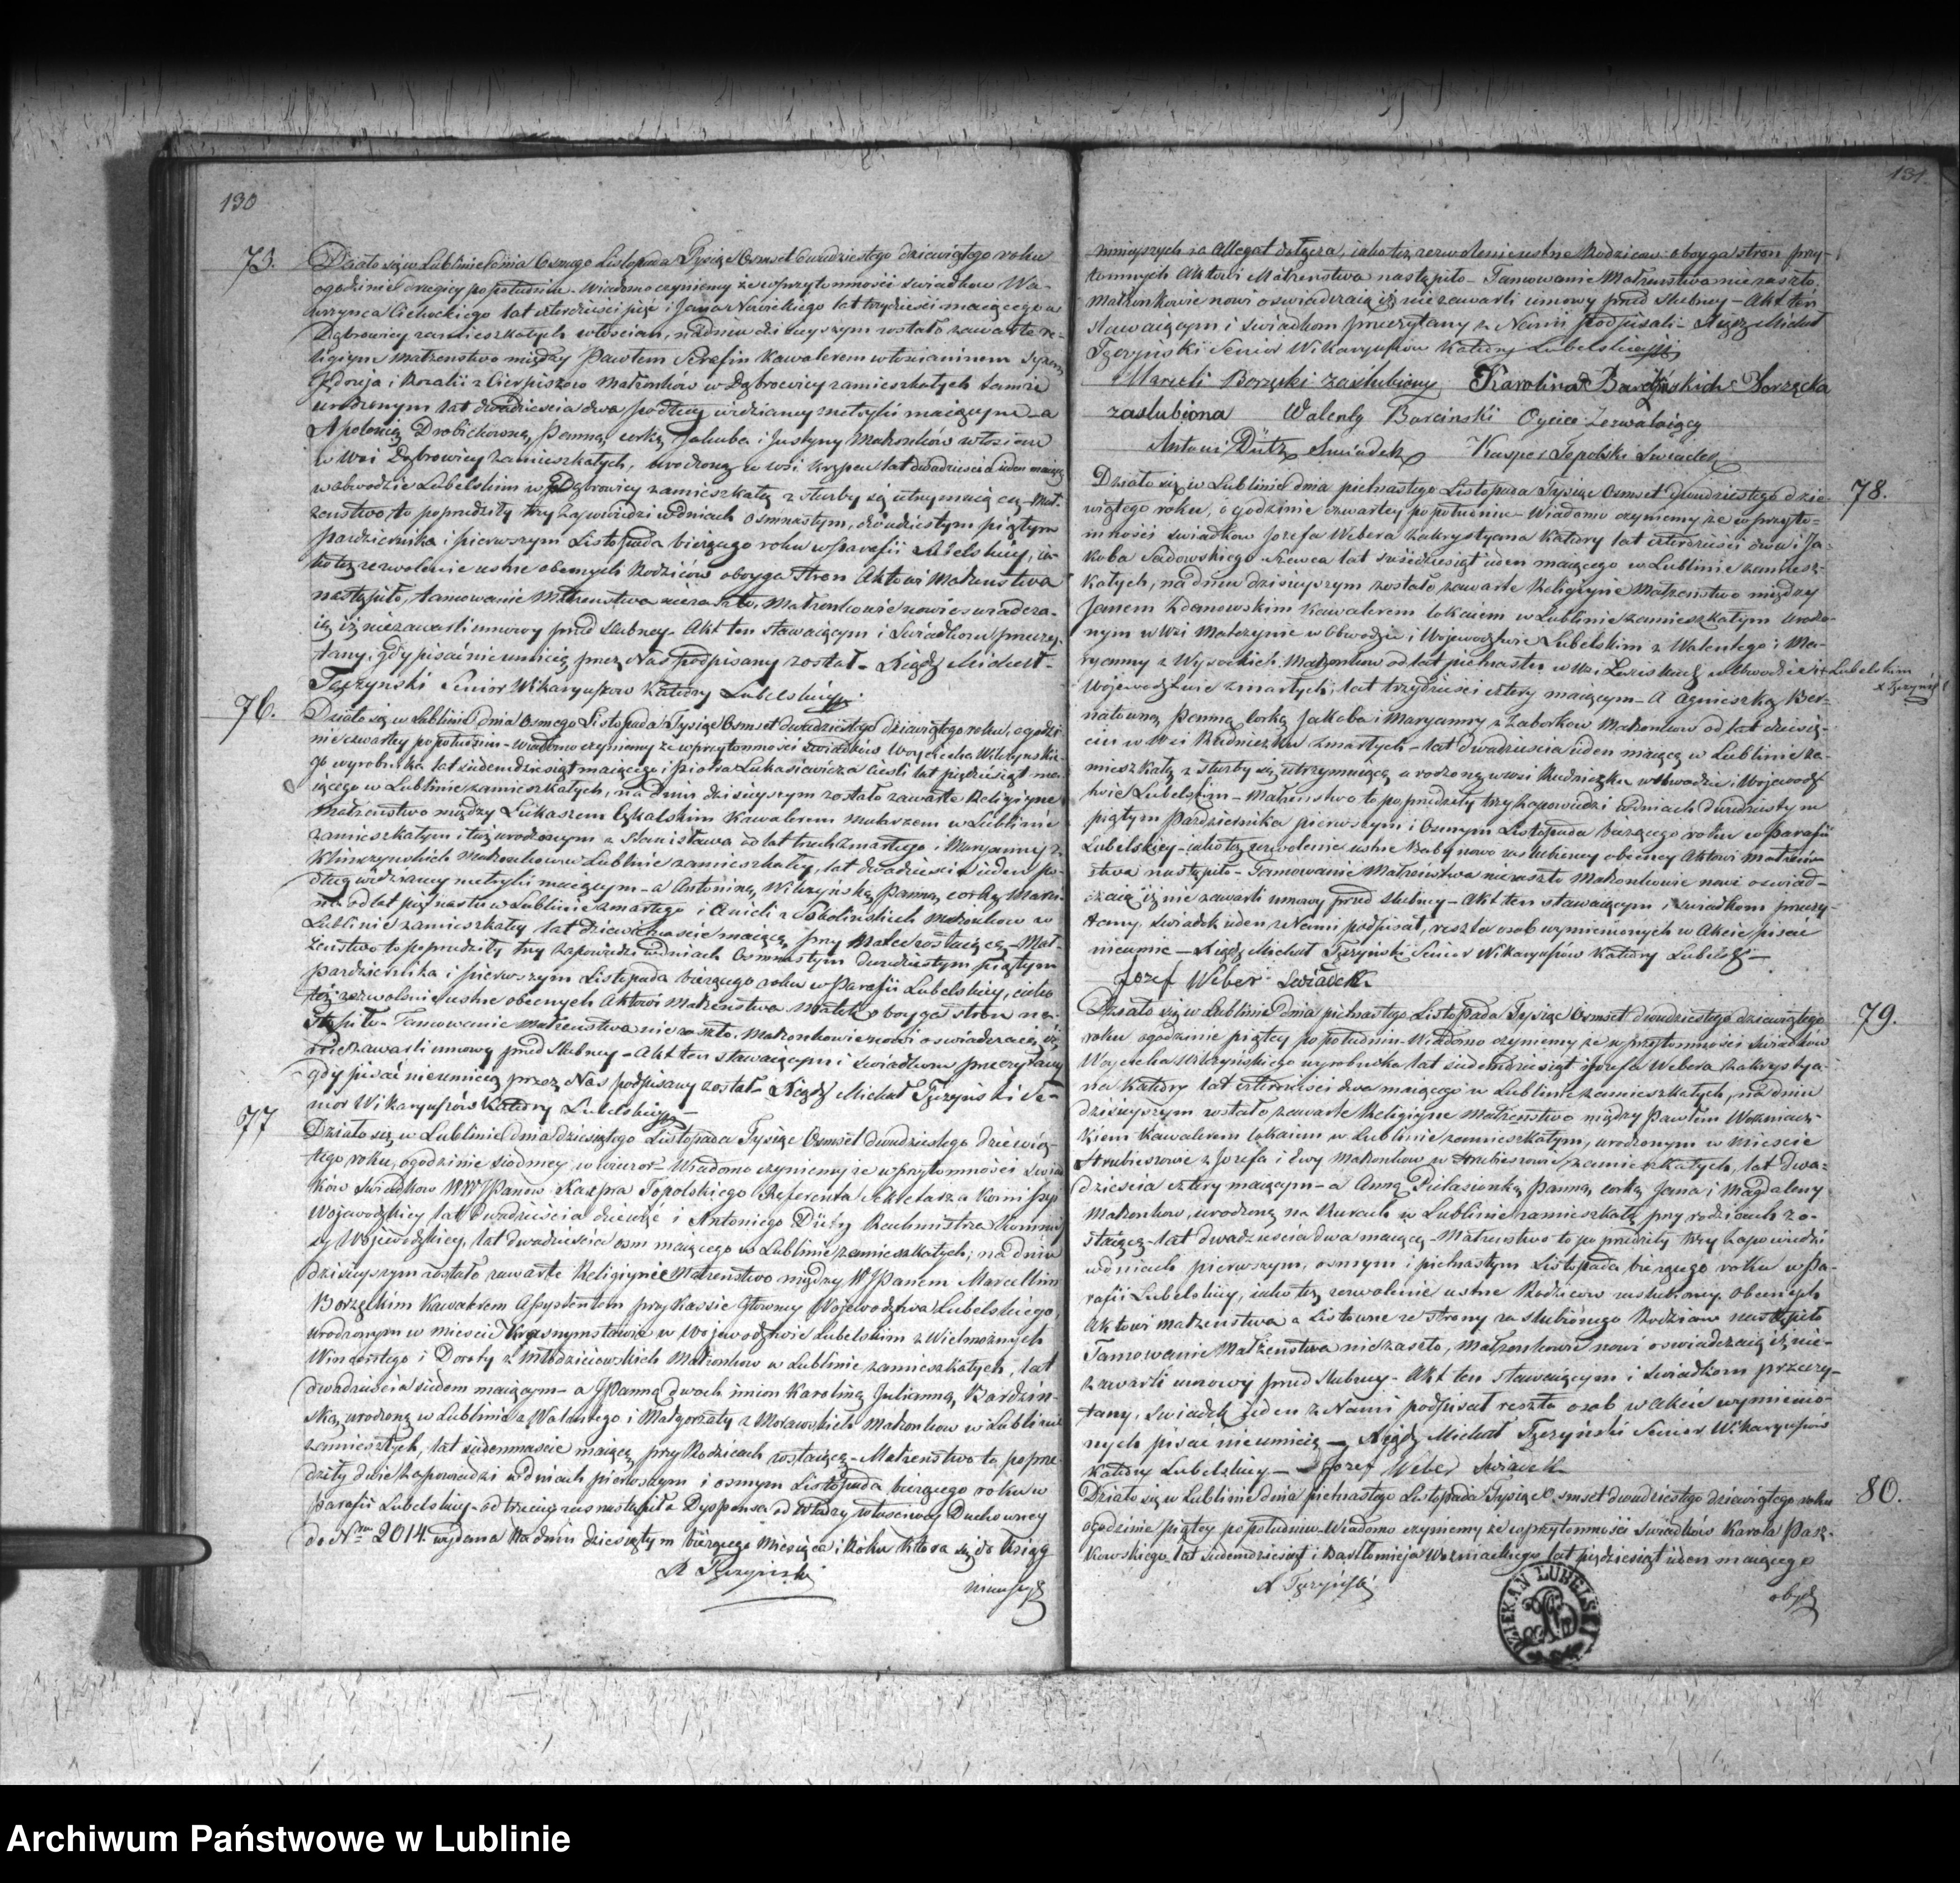 130
75. Działo się w Lublinie dnia Osmego Listopada Tysiąc Osmset dwudziestego dziewiątego roku
o godzinie drugiey po południu. Wiadomo czynimy że w przytomności swiadkow Wa-
wrzynca Cichockiego lat czterdzieści pięć i Jana Nowickiego lat trzydzieści maiącego w
Dąbrowicy zamieszkałych włościan, na dniu dzisieyszym zostało zawarte re-
ligijne małżenstwo między Pawłem Serafin kawalerem włościaninem synem
i Rozalii z Cierpiszow Małżonków w Dąbrowicy zamieszkałych tamże
urodzonym lat dwadzieścia dwa podług widzianey metryki maiącym - a
Apolonią Drobichowną, Panną, corką Jakuba i Justyny Małżonków włościan
w Wsi Dąbrowicy zamieszkałych, urodzoną w wsi lat dwadzieścia ieden maiącą
w obwodzie Lubelskim w Dąbrowicy zamieszkałą z służby się utrzymuiącą - Mał-
żenstwo to poprzedziły trzy zapowiedzi w dniach osmnastym, dwudziestym piątym
Pazdziernika i pierwszym Listopada bieżącego roku w Parafii Lubelskiey, ia-
ko też zezwolenie ustne obecnych Rodziców oboyga stron Aktowi Małżenstwa
nastąpiło, tamowanie Małżenstwa niezaszło, Małżonkowie nowi oswiadcza-
ią iż niezawarli umowy przed slubney - Akt ten stawaiącym i Swiadkom przeczy-
tany, gdy pisać nieumieią przez Nas podpisany został - Xiądz Michał
Tęczynski Senior Wikaryuszow Katedry Lubelskiey
76. Działo się w Lublinie dnia Osmego Listopada Tysiąc Osmset dwudziestego dziewiątego roku, o godzi-
nie czwartey po południu - Wiadomo czynimy że w przytomności swiadków Woyciecha Wilczynskie-
go wyrobnika lat siedemdziesiąt maiącego i Piotra Łukasiewicza Cieśli lat pięćdziesiąt ma-
iącego w Lublinie zamieszkałych, na dniu dzisieyszym zostało zawarte Religijne
Małżenstwo między Łukaszem Łękalskim Kawalerem malarzem w Lublinie
zamieszkałym i tuż urodzonym z Stanisława od lat trzech zmarłego i Maryanny z
Klimczynskich Małżonkow w Lublinie zamieszkałey, lat dwadzieścia ieden po-
dług widzianey metryki maiącym - a Antoniną Wilczynską Panną, corką Marci-
na od lat piętnastu w Lublinie zmarłego i Anieli z Małżonkow w
Lublinie zamieszkałey lat dziewietnaście maiącą, przy Matce zostaiącą - Mał-
żenstwo to poprzedziły trzy zapowiedzi w dniach Osmnastym dwudziestym piątym
Pazdziernika i pierwszym Listopada bieżącego roku w Parafii Lubelskiey, iako
też zezwolenie ustne obecnych Aktowi Małżenstwa Matek oboyga stron na-
stąpiło - Tamowanie małżenstwa nie zaszło. Małżonkowie nowi oswiadczaią iż
niezawarli umowy przed slubney - Akt ten stawaiącym i Swiadkom przeczytany
gdy pisać nieumieią przez Nas podpisany został - Xiądz Michał Tęczynski Se-
nior Wikaryuszów Katedry Lubelskiey
77 Działo się w Lublinie dnia dziesiątego Listopada Tysiąc Osmset dwudziestego dziewią-
tego roku, o godzinie siodmey w wieczor - Wiadomo czynimy że w przytomności swiad-
ków swiadkow WW JPanow Kaspra Topolskiego Referenta Sekretarza Komissyi
Wojewodzkiey lat dwadzieścia dziewięć i Antoniego Dütz Rachmistrza Kommis-
syi Wojewodzkiey, lat dwadzieścia osm maiącego w Lublinie zamieszkałych, na dniu
dzisieyszym zostało zawarte Religijne Małżenstwo między W JPanem Marcellim
Borzęckim kawalerem Assystentem przy Kassie Głowney Wojewodztwa Lubelskiego,
urodzonym w miescie Krasnymstawie w Wojewodztwie Lubelskim z Wielmożnych
Wincentego i Doroty z Młodziciowskich Małżonkow w Lublinie zamieszkałych, lat
dwadzieścia siedem maiącym - a JPanną dwoch imion Karoliną Julianną Bardzin-
ską, urodzoną w Lublinie z Walentego i Małgorzaty z Morawskich Małżonkow w Lublinie
zamieszkałych, lat siedemnaście maiącą, przy Rodzicach zostaiącą - Małżenstwo to poprze-
dziły dwie zapowiedzi w dniach pierwszym i osmym Listopada bieżącego roku w
Parafii Lubelskiey - od trzeciey zas nastąpiła Dyspensa od Władzy właściwey Duchowney
do Nru 2014. wydana na dniu dziesiątym bieżącego Miesiąca i Roku ktora się do Xsiąg
X Tęczynski
131.
ninieyszych za Allegat dołącza, iako też zezwolenie ustne Rodzicow oboyga stron przy-
tomnych Aktowi Małżenstwa nastąpiło - Tamowanie Małżenstwa nie zaszło,
Małżonkowie nowi oswiadczaią iż nie zawarli umowy przed slubney - Akt ten
stawaiącym i swiadkom przeczytany z Nami podpisali - Xiądz Michał
Tęczynski Senior Wikaryuszów Katedry Lubelskiey
Marceli Borzęcki zaslubiony Karolina z Bardzinskich Borzęcka
zaslubiona Walenty Barcinski Oyciec Zezwalaiący
Antoni Dütz Swiadek Kasper Topolski Swiadek
78. Działo się w Lublinie dnia pietnastego Listopada Tysiąc Osmset dwudziestego dzie-
wiątego roku, o godzinie czwartey po południu - Wiadomo czynimy że w przyto-
mności swiadkow Jozefa Webera Zakrystyana Katedry lat czterdzieści dwa i Ja-
koba Sadowskiego Szewca lat sześćdziesiąt ieden maiącego w Lublinie zamiesz-
kałych, na dniu dzisieyszym zostało zawarte Religijne Małżenstwo między
Janem Zdanowskim kawalerem lokaiem w Lublinie zamieszkałym urodzo-
nym w Wsi Matczynie w Obwodzie i Wojewodztwie Lubelskim z Walentego i Ma-
ryanny z Wysockich Małżonkow od lat pietnastu w Wsi w Obwodzie i + Lubelskim
X Tęczyński
Wojewodztwie zmarłych, lat trzydzieści cztery maiącym - A Agnieszką Ber-
natowną Panną corką Jakoba i Maryanny z Zaborkow Małżonkow od lat dziesię-
ciu w Wsi Rudnieżku zmarłych - lat dwadzieścia ieden maiącą w Lublinie za-
mieszkałą z służby się utrzymuiącą urodzoną w wsi Rudnieżku w obwodzie i Wojewodz-
twie Lubelskim - Małżenstwo to poprzedziły trzy Zapowiedzi w dniach dwudziestym
piątym Pazdziernika pierwszym i Osmym Listopada bieżącego roku w Parafii
Lubelskiey - iako też zezwolenie ustne Baby nowo zaslubioney obecney Aktowi Małżen-
stwa nastąpiło - Tamowanie Małżenstwa nie zaszło Małżonkowie nowi oswiad-
czaią iż nie zawarli umowy przed slubney - Akt ten stawaiącym i swiadkom przeczy-
tany, swiadek ieden z Nami podpisał, reszta osob wymienionych w Akcie pisać
nieumie - Xiądz Michał Tęczyński Senior Wikaryuszów Katedry Lubelsk -
Jozef Weber Swiadek
79. Działo się w Lublinie dnia pietnastego Listopada Tysiąc Osmset dwudziestego dziewiątego
roku o godzinie piątey po południu - Wiadomo czynimy że w przytomności swiadkow
Woyciecha Wilczyńskiego wyrobnika lat siedemdziesiąt i Jozefa Webera Zakrystya-
na Katedry lat czterdzieści dwa maiącego w Lublinie zamieszkałych, na dniu
dzisieyszym zostało zawarte Religijne Małżenstwo między Pawłem Wozniac-
kiem kawalerem lokaiem w Lublinie zamieszkałym, urodzonym w miescie
Hrubieszowie z Jozefa i Ewy Małżonkow w Hrubieszowie zamieszkałych, lat dwa-
dziescia cztery maiącym - a Anną Pietasionką Panną, corką Jana i Magdaleny
Małżonkow, urodzoną na w Lublinie zamieszkałą przy rodzicach zo-
staiącą - lat dwadzieścia dwa maiącą - Małżenstwo to poprzedziły trzy Zapowiedzi
w dniach pierwszym, osmym i pietnastym Listopada bieżącego roku w Pa-
rafii Lubelskiey, iako też zezwolenie ustne Rodzicow zaslubioney obecnych
Aktowi małżenstwa a Listowne ze strony zaslubionego Rodziców nastąpiło
Tamowanie Małżenstwa nie zaszło, Małżonkowie nowi oswiadczaią iż nie-
zawarli umowy przed slubney - Akt ten stawaiącym i swiadkom przeczy-
tany, swiadek ieden z Nami podpisał reszta osob w akcie wymienio-
nych pisać nieumieią - Xiądz Michał Tęczyński Senior Wikaryuszów
Katedry Lubelskiey - Jozef Weber Swiadek
80. Działo się w Lublinie dnia pietnastego Listopada Tysiąc Osmset dwudziestego dziewiątego roku
o godzinie piątey po południu - Wiadomo czynimy że w przytomności swiadków Karola Pasz-
kowskiego lat siedemdziesiąt i Bartłomieja Wozniackiego lat pięćdziesiąt ieden maiącego
X Tęczyński
DZIEKAN LUBELSKI
Archiwum Państwowe w Lublinie